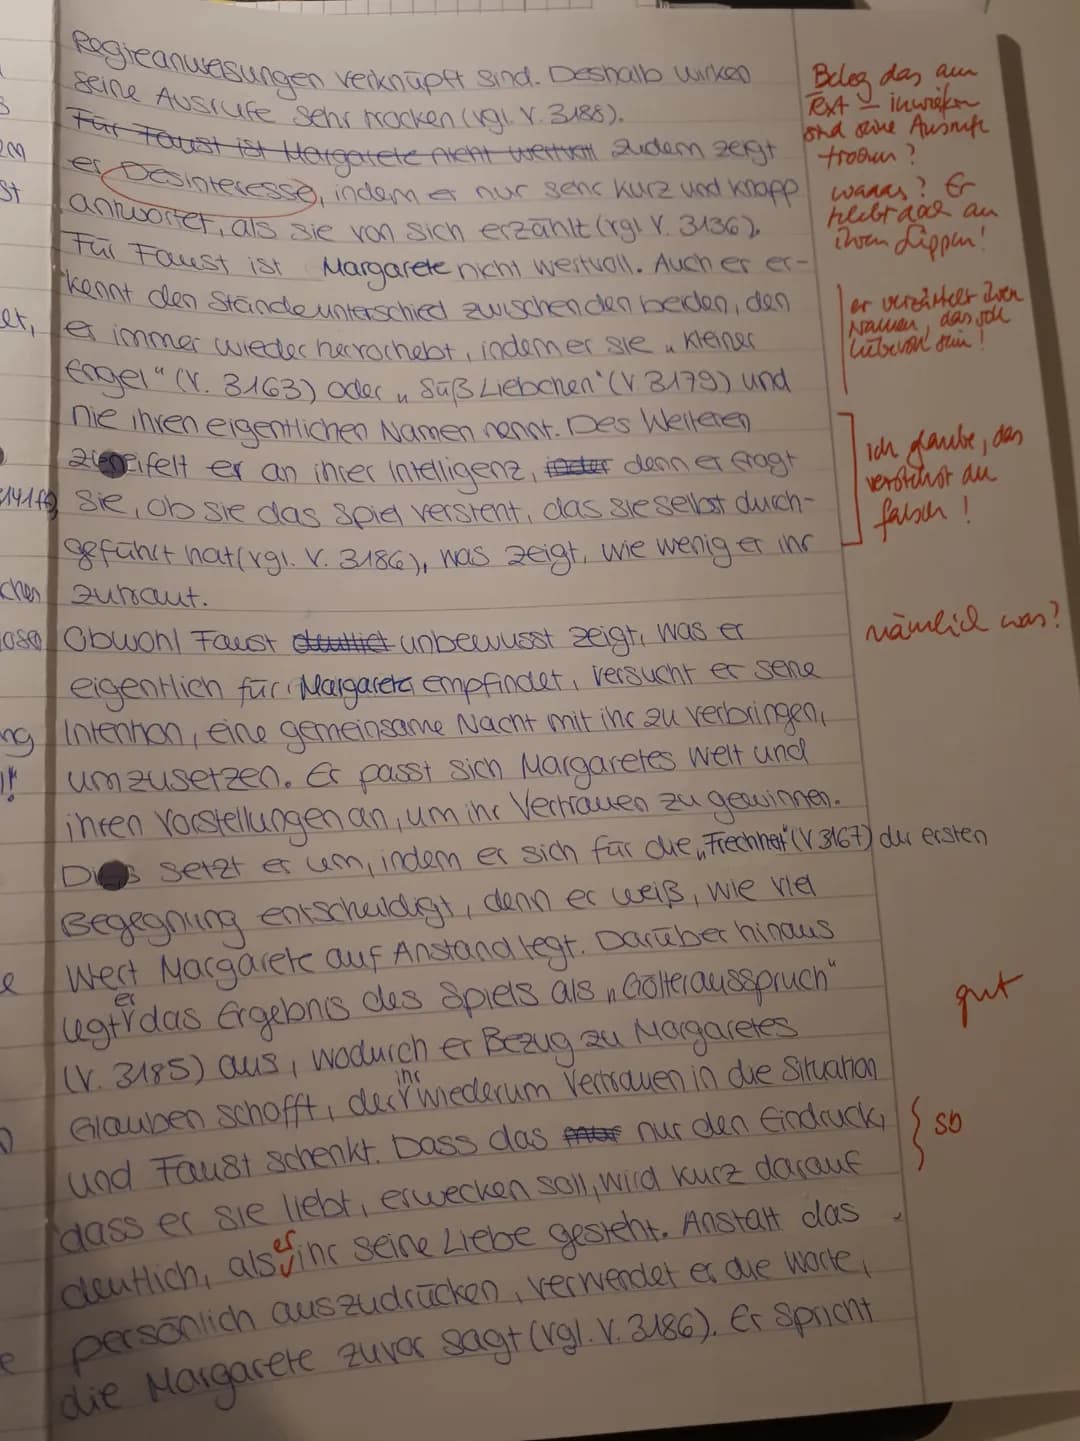 Regieanweisungen verknüpft sind. Deshalb wirken
seine Ausrufe sehr trocken (vgl. V. 3188).
Für Faust ist Margarete nicht wertvoll Zudem zeigt
er Desinteresse, indem er nur sehr kurz und knapp
antwortet, als sie von sich erzählt (vgl. V. 3136).
Für Faust ist Margarete nicht wertvoll. Auch er er-
kennt den Ständeunterschied zwischen den beiden, den
er immer wieder hervorhebt, indem er sie „kleiner
Engel" (V. 3163) oder „Süß Liebchen" (V 3179) und
nie ihren eigentlichen Namen nennt. Des Weiteren
zweifelt er an ihrer Intelligenz, denn er fragt
sie, ob sie das Spiel versteht, das sie selbst durch-
geführt hat (vgl. V. 3186), was zeigt, wie wenig er ihr
zutraut.
Obwohl Faust unbewusst zeigt, was er
eigentlich für Margarete empfindet, versucht er seine
Intention, eine gemeinsame Nacht mit ihr zu verbringen,
umzusetzen. Er passt sich Margaretes Welt und
ihren Vorstellungen an, um ihr Vertrauen zu gewinnen.
Dies setzt er um, indem er sich für die „Frechheit" (V 3167) der ersten
Begegnung entschuldigt, denn er weiß, wie viel
Wert Margarete auf Anstand legt. Darüber hinaus
legt er das Ergebnis des Spiels als „Götterausspruch"
(V. 3185) aus, wodurch er Bezug zu Margaretes
Glauben schafft, der ihr wiederum Vertrauen in die Situation
und Faust schenkt. Dass das nur den Eindruck,
dass er sie liebt, erwecken soll, wird kurz darauf
deutlich, als er ihr seine Liebe gesteht. Anstatt das
persönlich auszudrücken, verwendet er die Worte,
die Margarete zuvor sagt (vgl. V. 3186). Er spricht
Beleg das am
Text – inwiefern
sind seine Ausrufe
trocken?
waaas? Er
klebt doch an
ihren Lippen!
er verzärtelt ihren
Namen, das soll
liebevoll sein!
ich glaube, das
verstehst du
falsch!
nämlich was?
gut
so